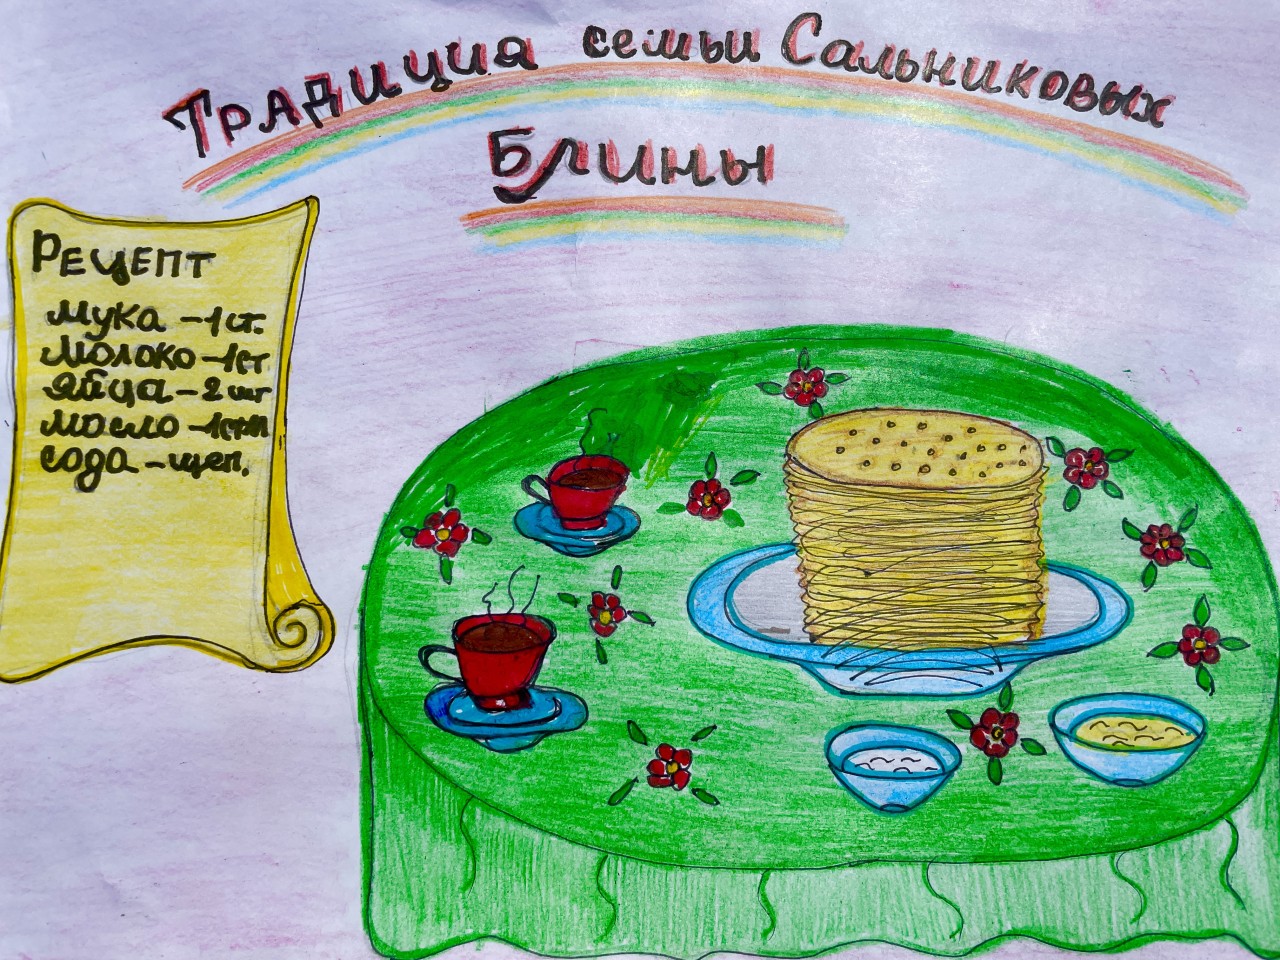 Традиция семьи Сальниковых
Блины
Рецепт
мука - 1 ст.
молоко - 1 ст.
яйца - 2 шт
масло - 1 ст л
сода - щеп.